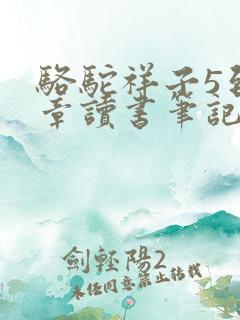 駱駝祥子5到
章讀書筆記
劍輊陽2
未經同意禁止轉載